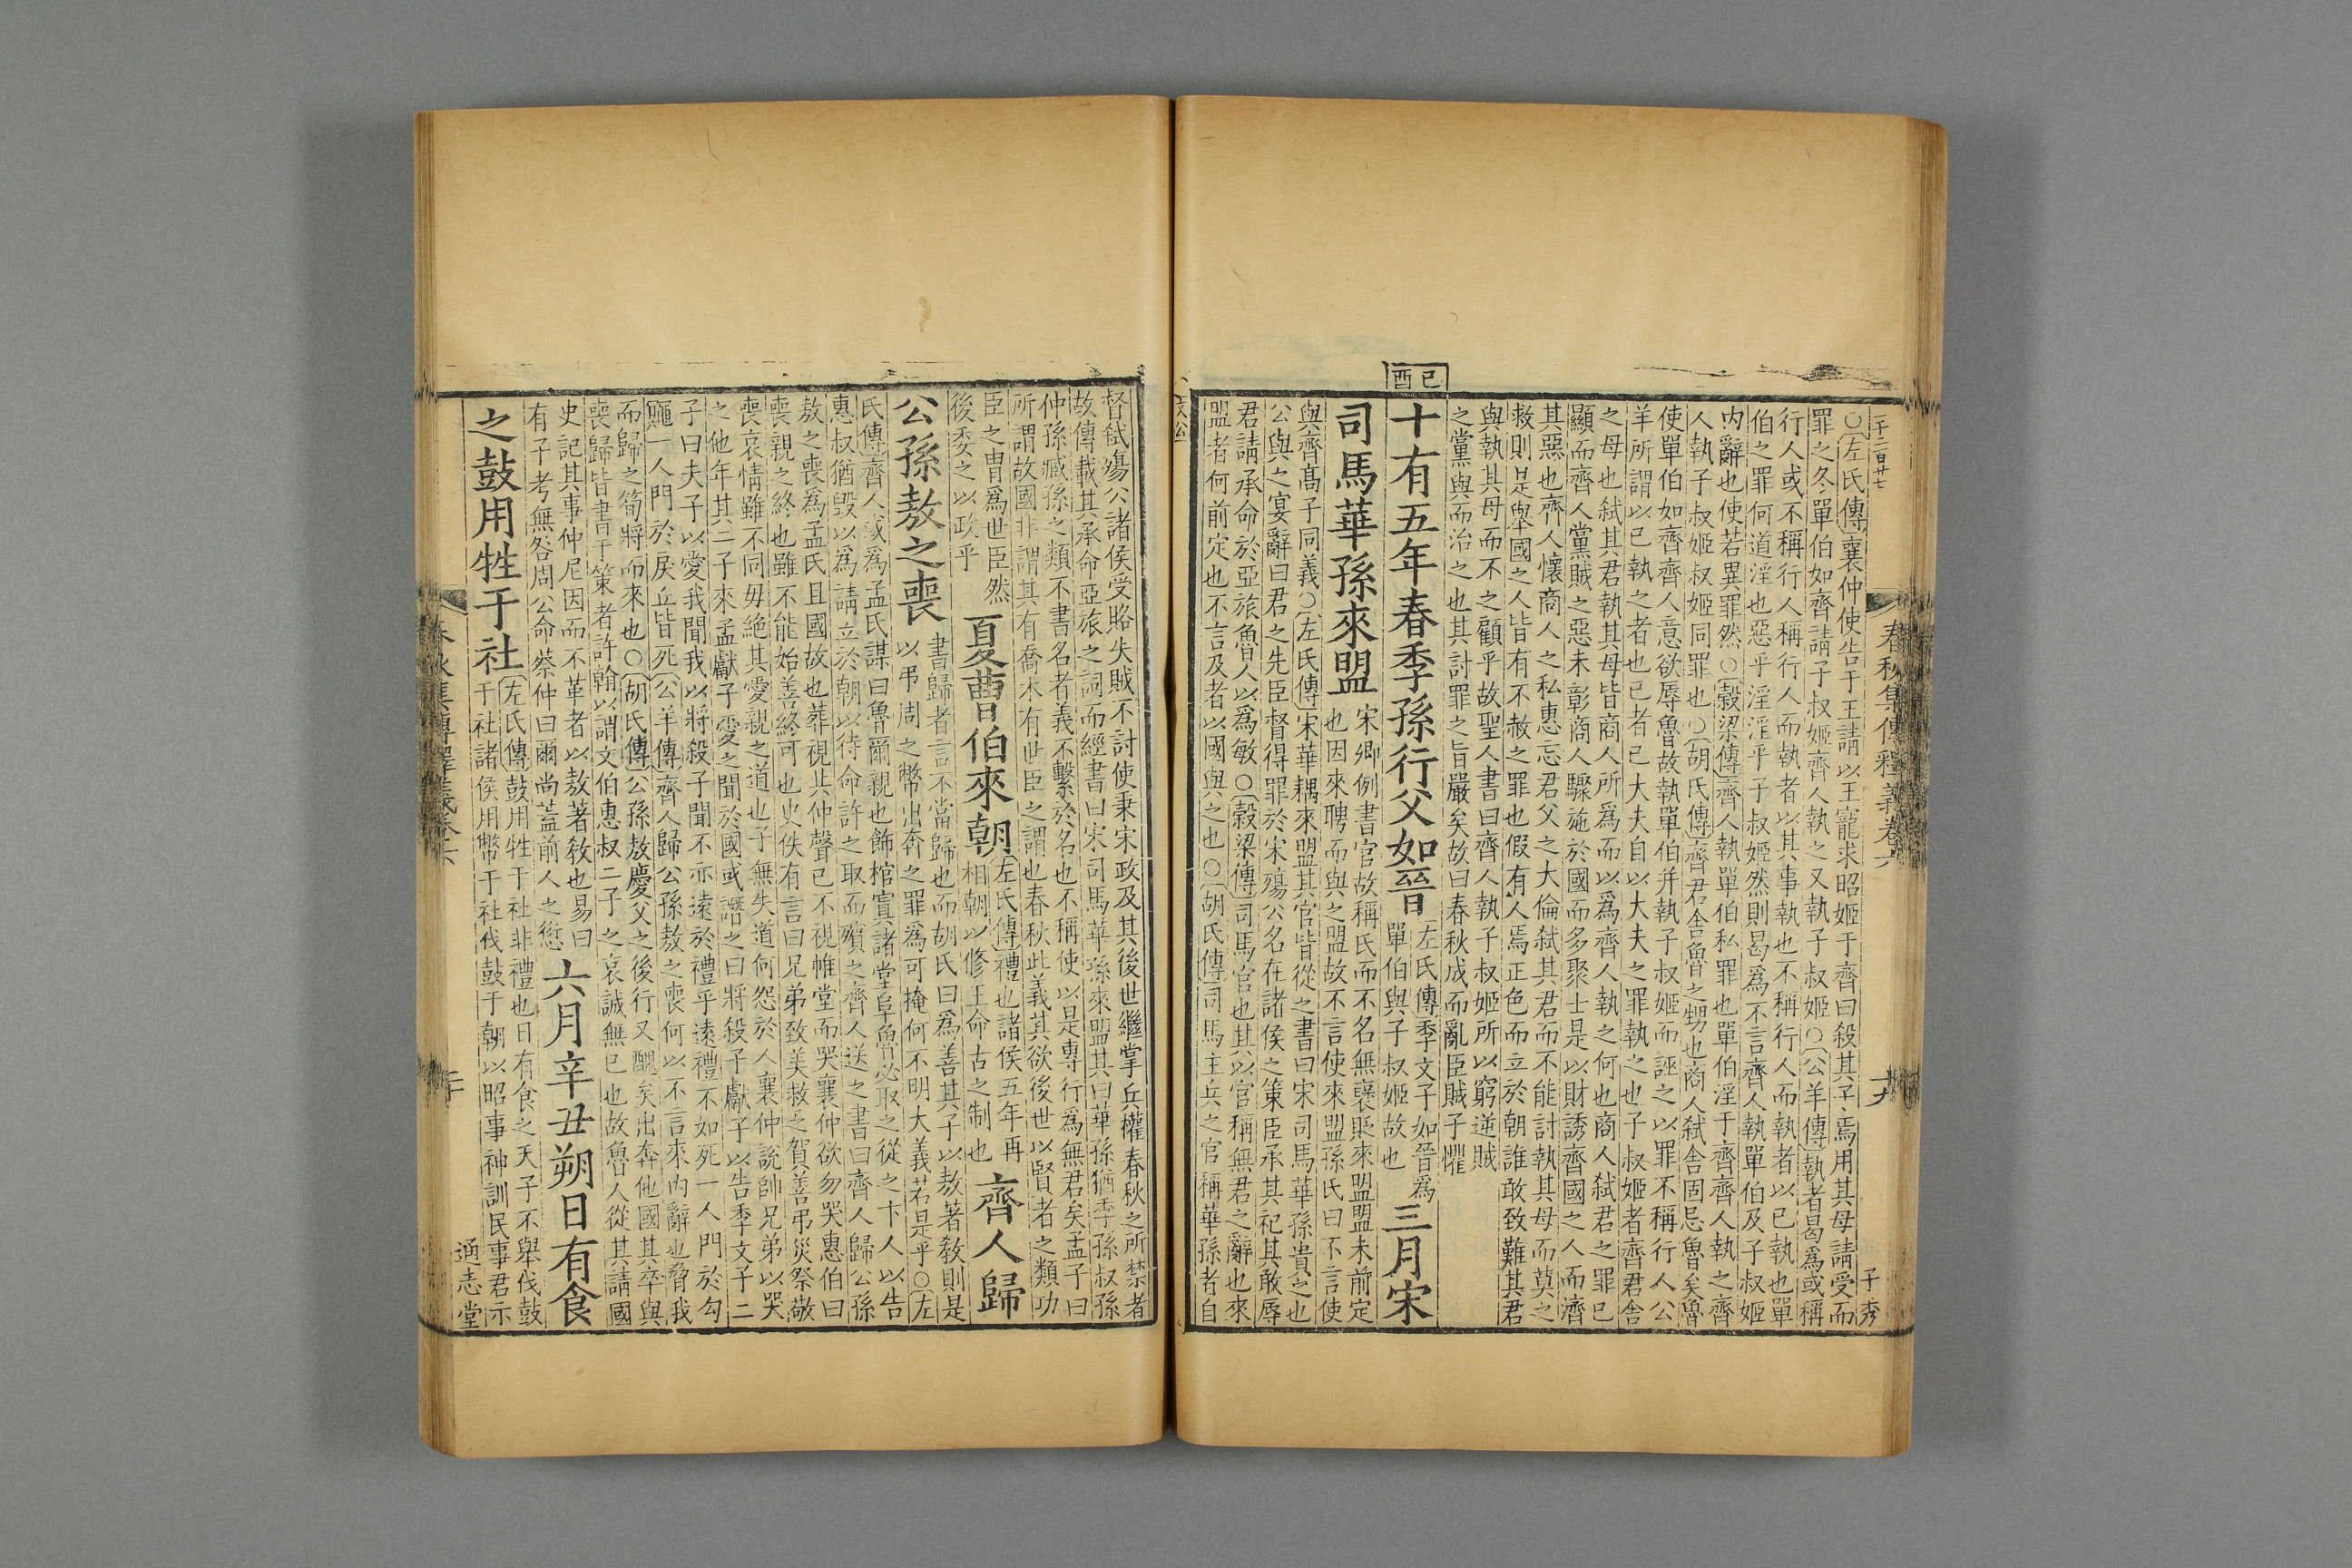 一千二百廿七
春秋集傳釋義卷六
十九
子秀
○左氏傳襄仲使告于王請以王寵求昭姬于齊曰殺其子焉用其母請受而
罪之冬單伯如齊請子叔姬齊人執之又執子叔姬○公羊傳執者曷爲或稱
行人或不稱行人稱行人而執者以其事執也不稱行人而執者以已執也單
伯之罪何道淫也惡乎淫淫乎子叔姬然則曷爲不言齊人執單伯及子叔姬
内辭也使若異罪然○穀梁傳齊人執單伯私罪也單伯淫于齊齊人執之齊
人執子叔姬叔姬同罪也○胡氏傳齊君舎魯之甥也商人弑舎固忌魯矣魯
使單伯如齊齊人意欲辱魯故執單伯并執子叔姬而誣之以罪不稱行人公
羊所謂以已執之者也已者已大夫自以大夫之罪執之也子叔姬者齊君舎
之母也弑其君執其母皆商人所爲而以爲齊人執之何也商人弑君之罪已
顯而齊人黨賊之惡未彰商人驟施於國而多聚士是以財誘齊國之人而濟
其惡也齊人懷商人之私惠忘君父之大倫弑其君而不能討執其母而莫之
救則是舉國之人皆有不赦之罪也假有人焉正色而立於朝誰敢致難其君
與執其母而不之顧乎故聖人書曰齊人執子叔姬所以窮逆賊
之黨與而治之也其討罪之旨嚴矣故曰春秋成而亂臣賊子懼
己酉
十有五年春季孫行父如晉
左氏傳季文子如晉爲
單伯與子叔姬故也
三月宋
司馬華孫來盟
宋卿例書官故稱氏而不名無褒貶來盟盟未前定
也因來聘而與之盟故不言使來盟孫氏曰不言使
與齊髙子同義○左氏傳宋華耦來盟其官皆從之書曰宋司馬華孫貴之也
公與之宴辭曰君之先臣督得罪於宋殤公名在諸侯之策臣承其祀其敢辱
君請承命於亞旅魯人以爲敏○穀梁傳司馬官也其以官稱無君之辭也來
盟者何前定也不言及者以國與之也○胡氏傳司馬主兵之官稱華孫者自
督弑殤公諸侯受賂失賊不討使秉宋政及其後世繼掌兵權春秋之所禁者
故傳載其承命亞旅之詞而經書曰宋司馬華孫來盟其曰華孫猶季孫叔孫
仲孫臧孫之類不書名者義不繫於名也不稱使以是專行爲無君矣孟子曰
所謂故國非謂其有喬木有世臣之謂也春秋此義其欲後世以賢者之類功
臣之胄爲世臣然
後委之以政乎
夏曹伯來朝
左氏傳禮也諸侯五年再
相朝以修王命古之制也
齊人歸
公孫敖之喪
書歸者言不當歸也而胡氏曰爲善其子以敖著敎則是
以弔周之幣出奔之罪爲可掩何不明大義若是乎○左
氏傳齊人或爲孟氏謀曰魯爾親也飾棺寘諸堂阜魯必取之從之卞人以告
惠叔猶毁以爲請立於朝以待命許之取而殯之齊人送之書曰齊人歸公孫
敖之喪爲孟氏且國故也葬視共仲聲已不視帷堂而哭襄仲欲勿哭惠伯曰
喪親之終也雖不能始善終可也史佚有言曰兄弟致美救乏賀善弔災祭敬
喪哀情雖不同毋絶其愛親之道也子無失道何怨於人襄仲說帥兄弟以哭
之他年其二子來孟獻子愛之聞於國或譖之曰將殺子獻子以告季文子二
子曰夫子以愛我聞我以將殺子聞不亦遠於禮乎遠禮不如死一人門於句
鼆一人門於戾丘皆死○公羊傳齊人歸公孫敖之喪何以不言來内辭也脅我
而歸之筍將而來也○胡氏傳公孫敖慶父之後行又醜矣出奔他國其卒與
喪歸皆書于策者許翰以謂文伯惠叔二子之哀誠無已也故魯人從其請國
史記其事仲尼因而不革者以敖著敎也易曰
有子考無咎周公命蔡仲曰爾尚蓋前人之愆
六月辛丑朔日有食
之鼓用牲于社
左氏傳鼓用牲于社非禮也日有食之天子不舉伐鼓
于社諸侯用幣于社伐鼓于朝以昭事神訓民事君示
通志堂